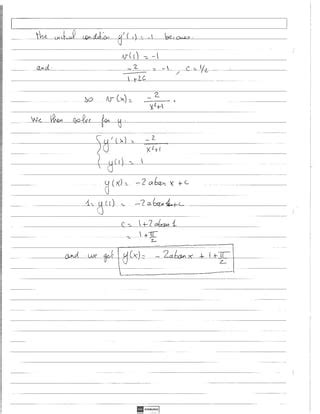 the initial condition y'(1) = -1 becomes
v(1) = -1
and -2/(1+2c) = -1, c = 1/2
so v(x) = -2/(x²+1).
We then solve for y:
{ y'(x) = -2/(x²+1)
{ y(1) = 1
y(x) = -2 atan x + c
1 = y(1) = -2 atan 1 + c
c = 1 + 2 atan 1
= 1 + π/2
and we get y(x) = -2 atan x + 1 + π/2